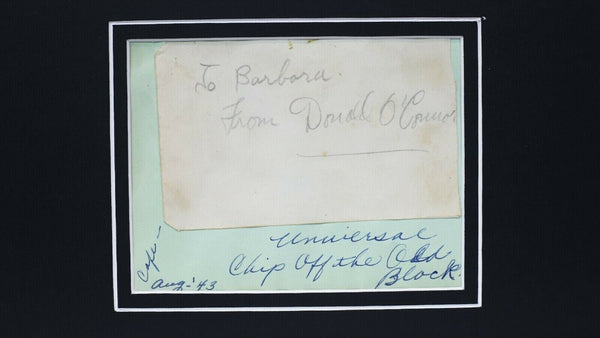 To Barbara.
From Donald O'Connor
Universal
Chip Off the Old
Block.
Cafe -
Aug - '43